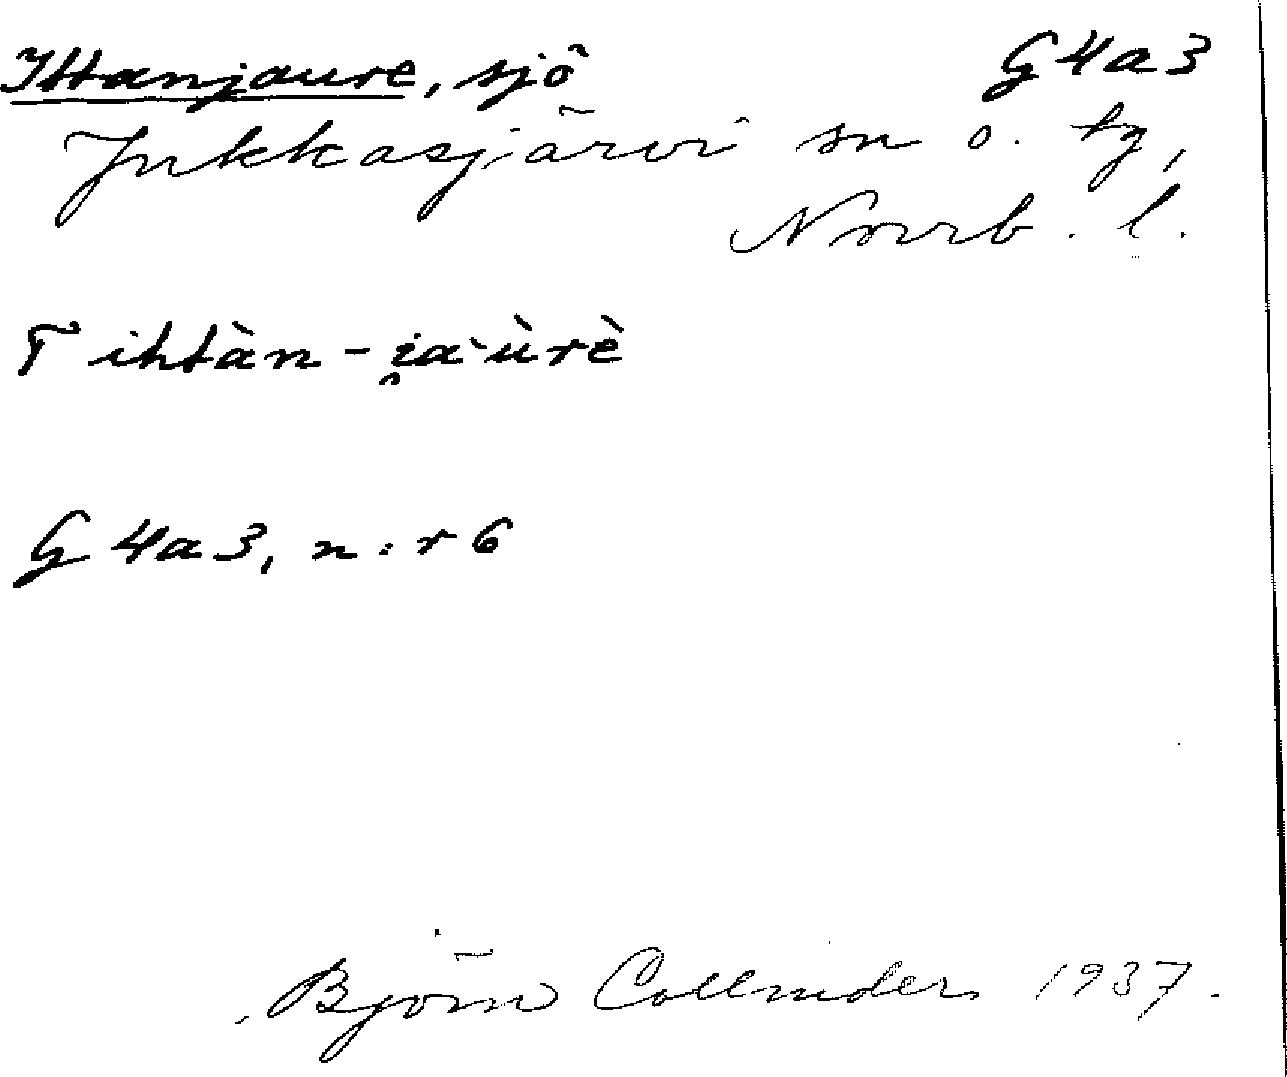 Ittanjaure, sjö G4a3
Jukkasjärvi sn o. tg,
Norrb. l.
T ihtàn-i̯a·ùrè
G4a3, n:r 6
Björn Collinder 1937.